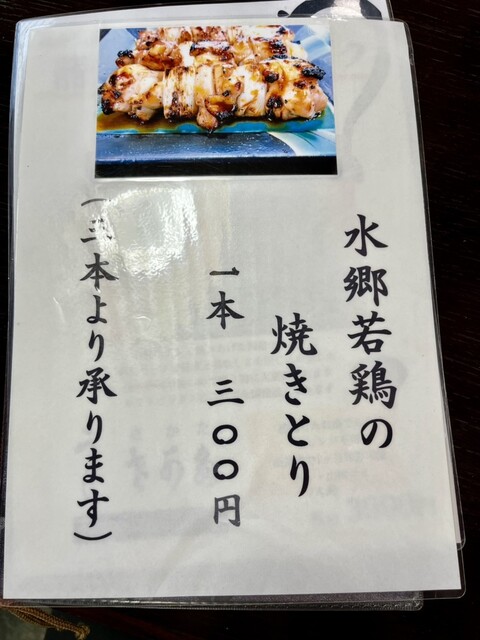 水郷若鶏の
焼きとり
一本 三〇〇円
(三本より承ります)